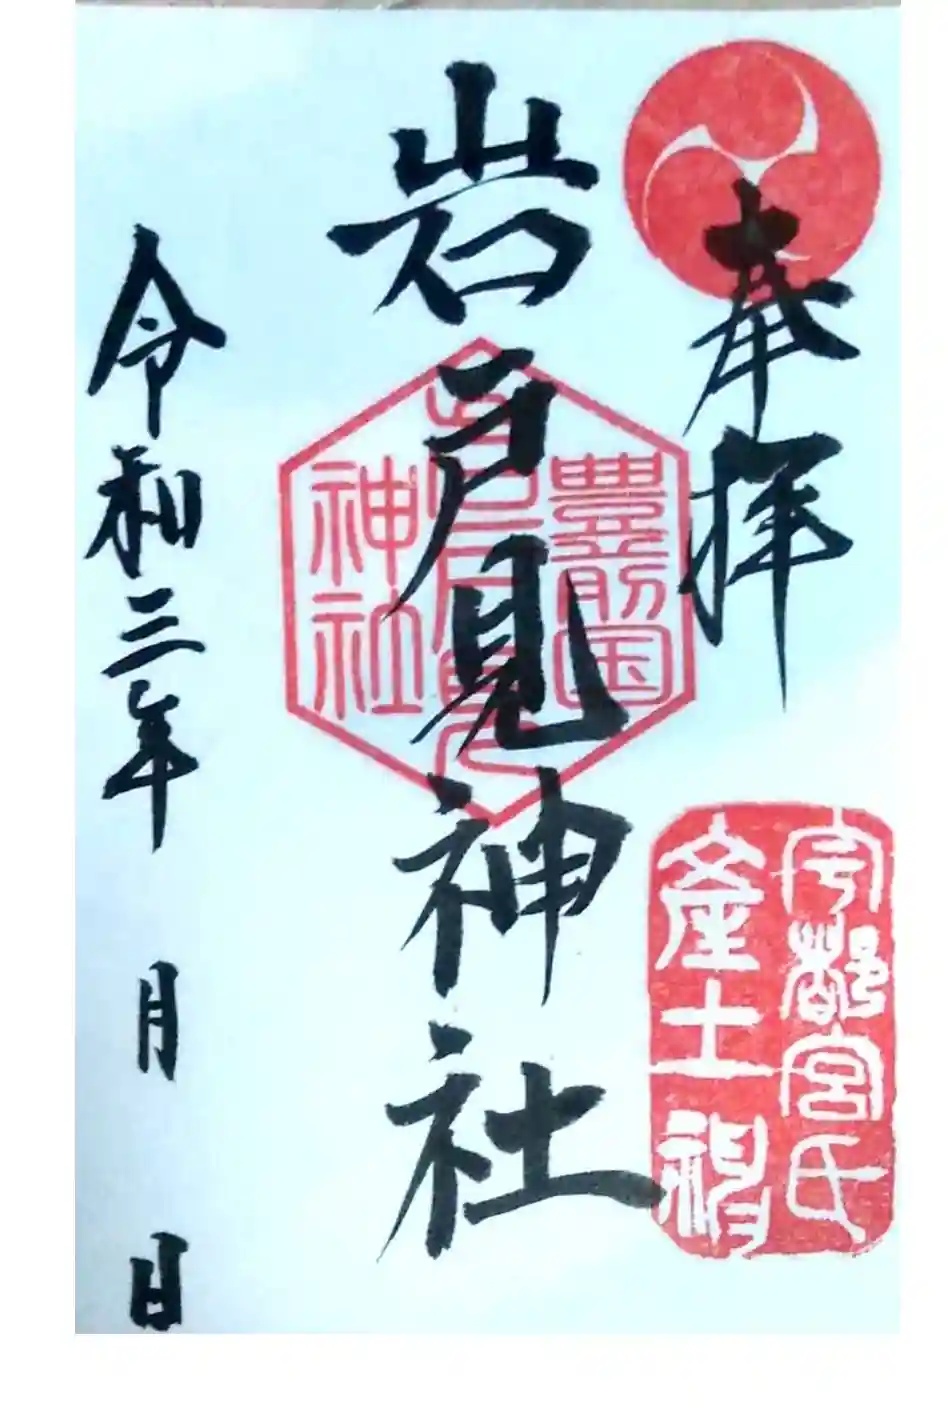 奉拝
宇都宮氏
産土神
豊前国
岩戸見
神社
岩戸見神社
令和三年 月 日